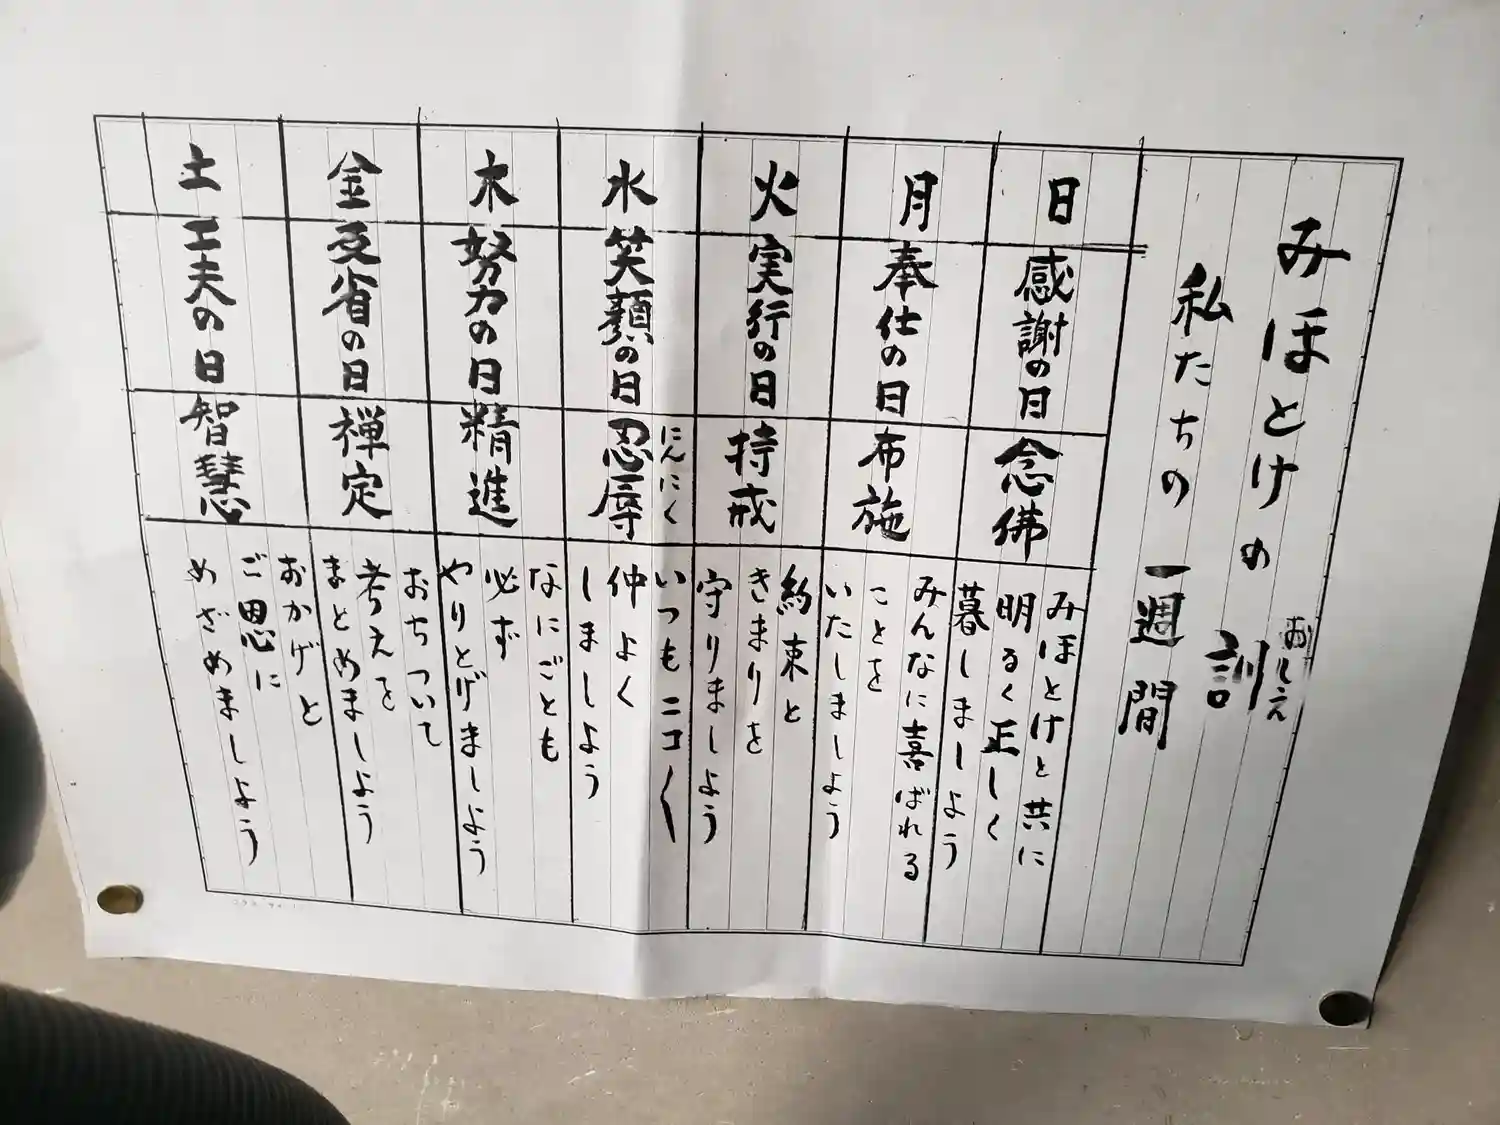 みほとけの訓
おしえ
私たちの一週間
日
感謝の日
念佛
みほとけと共に
明るく正しく
暮しましよう
月
奉仕の日
布施
みんなに喜ばれる
ことを
いたしましよう
火
実行の日
持戒
約束と
きまりを
守りましよう
水
笑顔の日
にんにく
忍辱
いつもニコ〱
仲よく
しましよう
木
努力の日
精進
なにごとも
必ず
やりとげましよう
金
反省の日
禅定
おちついて
考えを
まとめましよう
土
工夫の日
智慧
おかげと
ご恩に
めざめましよう